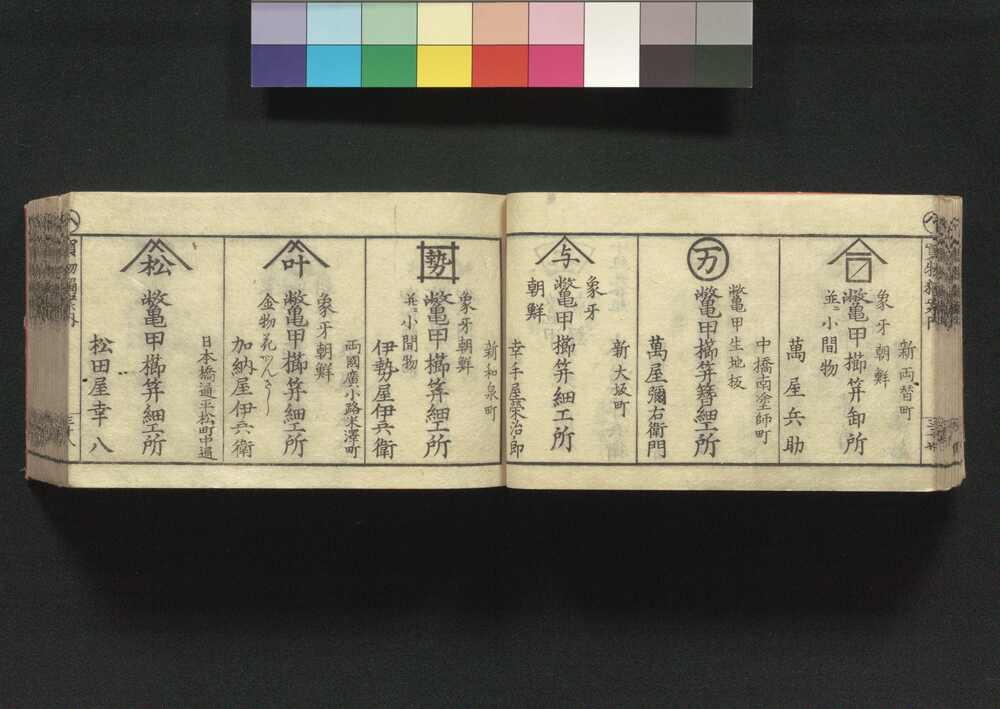 新両替町
象牙
朝鮮
鼈亀甲櫛笄卸所
並ニ小間物
萬屋兵助
中橋南塗師町
鼈亀甲生地板
万
鼈亀甲櫛笄簪細工所
萬屋彌右衛門
新大坂町
象牙
与
鼈亀甲櫛笄細工所
朝鮮
幸手屋栄治郎
新和泉町
象牙朝鮮
勢
鼈亀甲櫛笄細工所
並ニ小間物
伊勢屋伊兵衛
両國廣小路米澤町
象牙朝鮮
叶
鼈亀甲櫛笄細工所
金物花かんざし
加納屋伊兵衛
日本橋通平松町中通
松
鼈亀甲櫛笄細工所
松田屋幸八